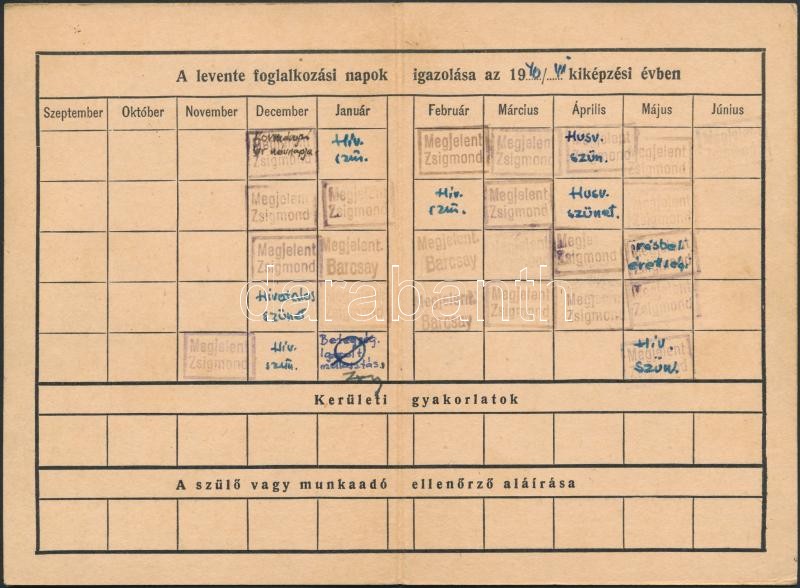 A levente foglalkozási napok igazolása az 1940/41 kiképzési évben
Szeptember Október November December Január Február Március Április Május Június
Kormányzó úr névnapja
Hiv. szün.
Megjelent Zsigmond
Megjelent Zsigmond
Husv. szün.
Megjelent Zsigmond
Megjelent Zsigmond
Megjelent Zsigmond
Hiv. szün.
Megjelent Zsigmond
Husv. szünet.
Megjelent Zsigmond
Megjelent Zsigmond
Megjelent. Barcsay
Megjelent Barcsay
Megjelent Zsigmond
Írásbeli érettségi
Hivatalos szünet
Megjelent. Barcsay
Megjelent Zsigmond
Megjelent Zsigmond
Zsigmond
Megjelent Zsigmond
Hiv. szün.
Betegség. Igazolt
Megjelent Zsigmond
Hiv. Szün.
darabanth
Kerületi gyakorlatok
A szülő vagy munkaadó ellenőrző aláírása